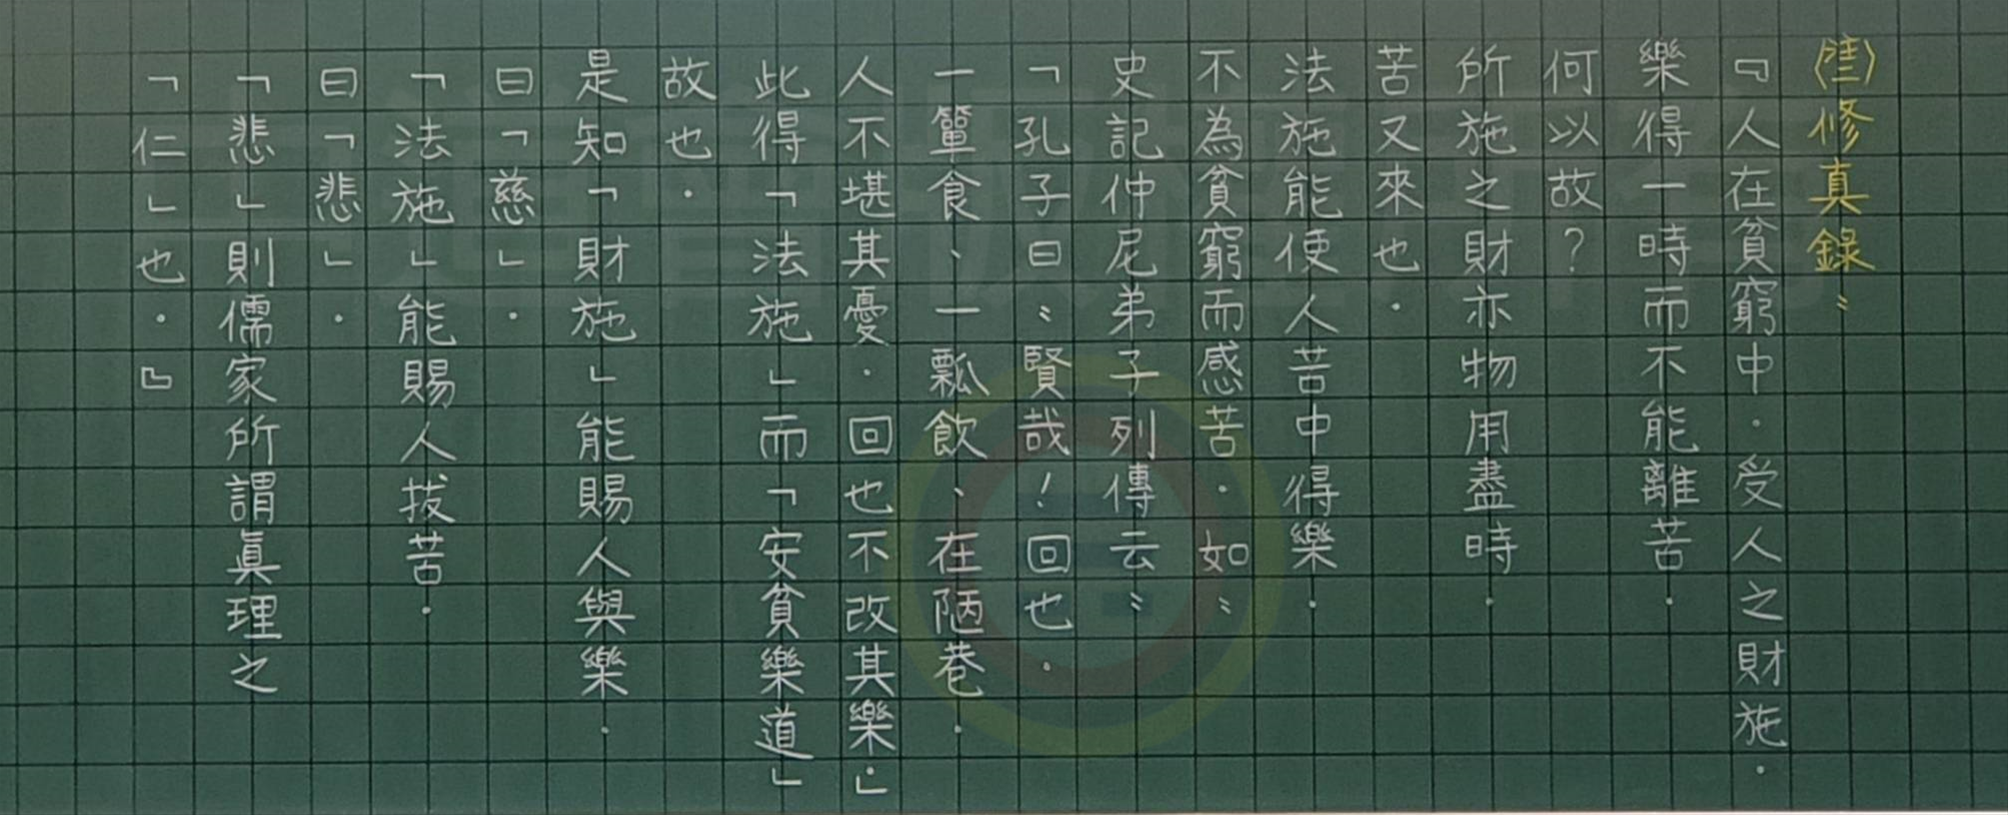 (陸)修真錄：
『人在貧窮中．受人之財施．
樂得一時而不能離苦．
何以故？
所施之財亦物用盡時．
苦又來也．
法施能使人苦中得樂．
不為貧窮而感苦．如：
史記仲尼弟子列傳云：
「孔子曰：賢哉！回也．
一簞食、一瓢飲、在陋巷．
人不堪其憂．回也不改其樂．」
此得「法施」而「安貧樂道」
故也．
是知「財施」能賜人與樂．
曰「慈」．
「法施」能賜人拔苦．
曰「悲」．
「悲」則儒家所謂真理之
「仁」也．』